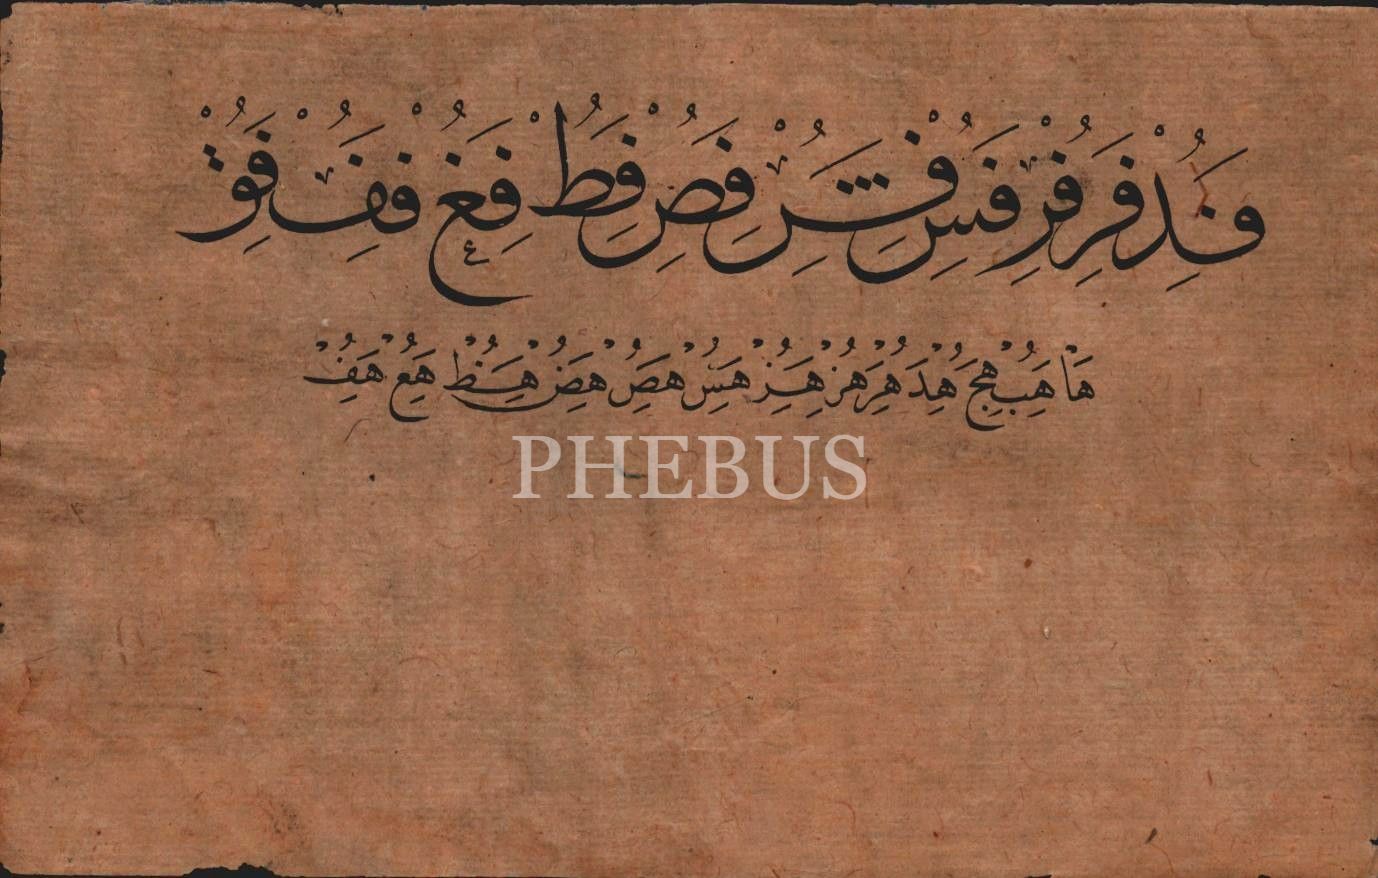 فد فر فر فس فش فص فط فع فف فق
ها هب هج هد هر هز هس هص هض هظ هع هف
PHEBUS